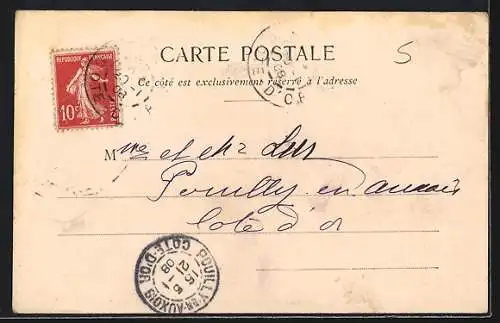 CARTE POSTALE
5
Ce côté est exclusivement réservé à l'adresse
RÉPUBLIQUE FRANÇAISE
10c
POSTES
D'OR
M me et Mr
Pouilly en auxois
Cote d'or
POUILLY-EN-AUXOIS
15 6
21 -1
08
COTE-D'OR